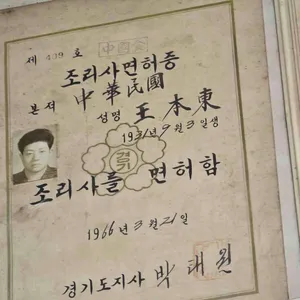 제 409 호
조리사면허증
본적 中華民國
성명 王本東
1931年9월3일생
경기
조리사를 면허함
1966년 3월 21일
경기도지사 박태원